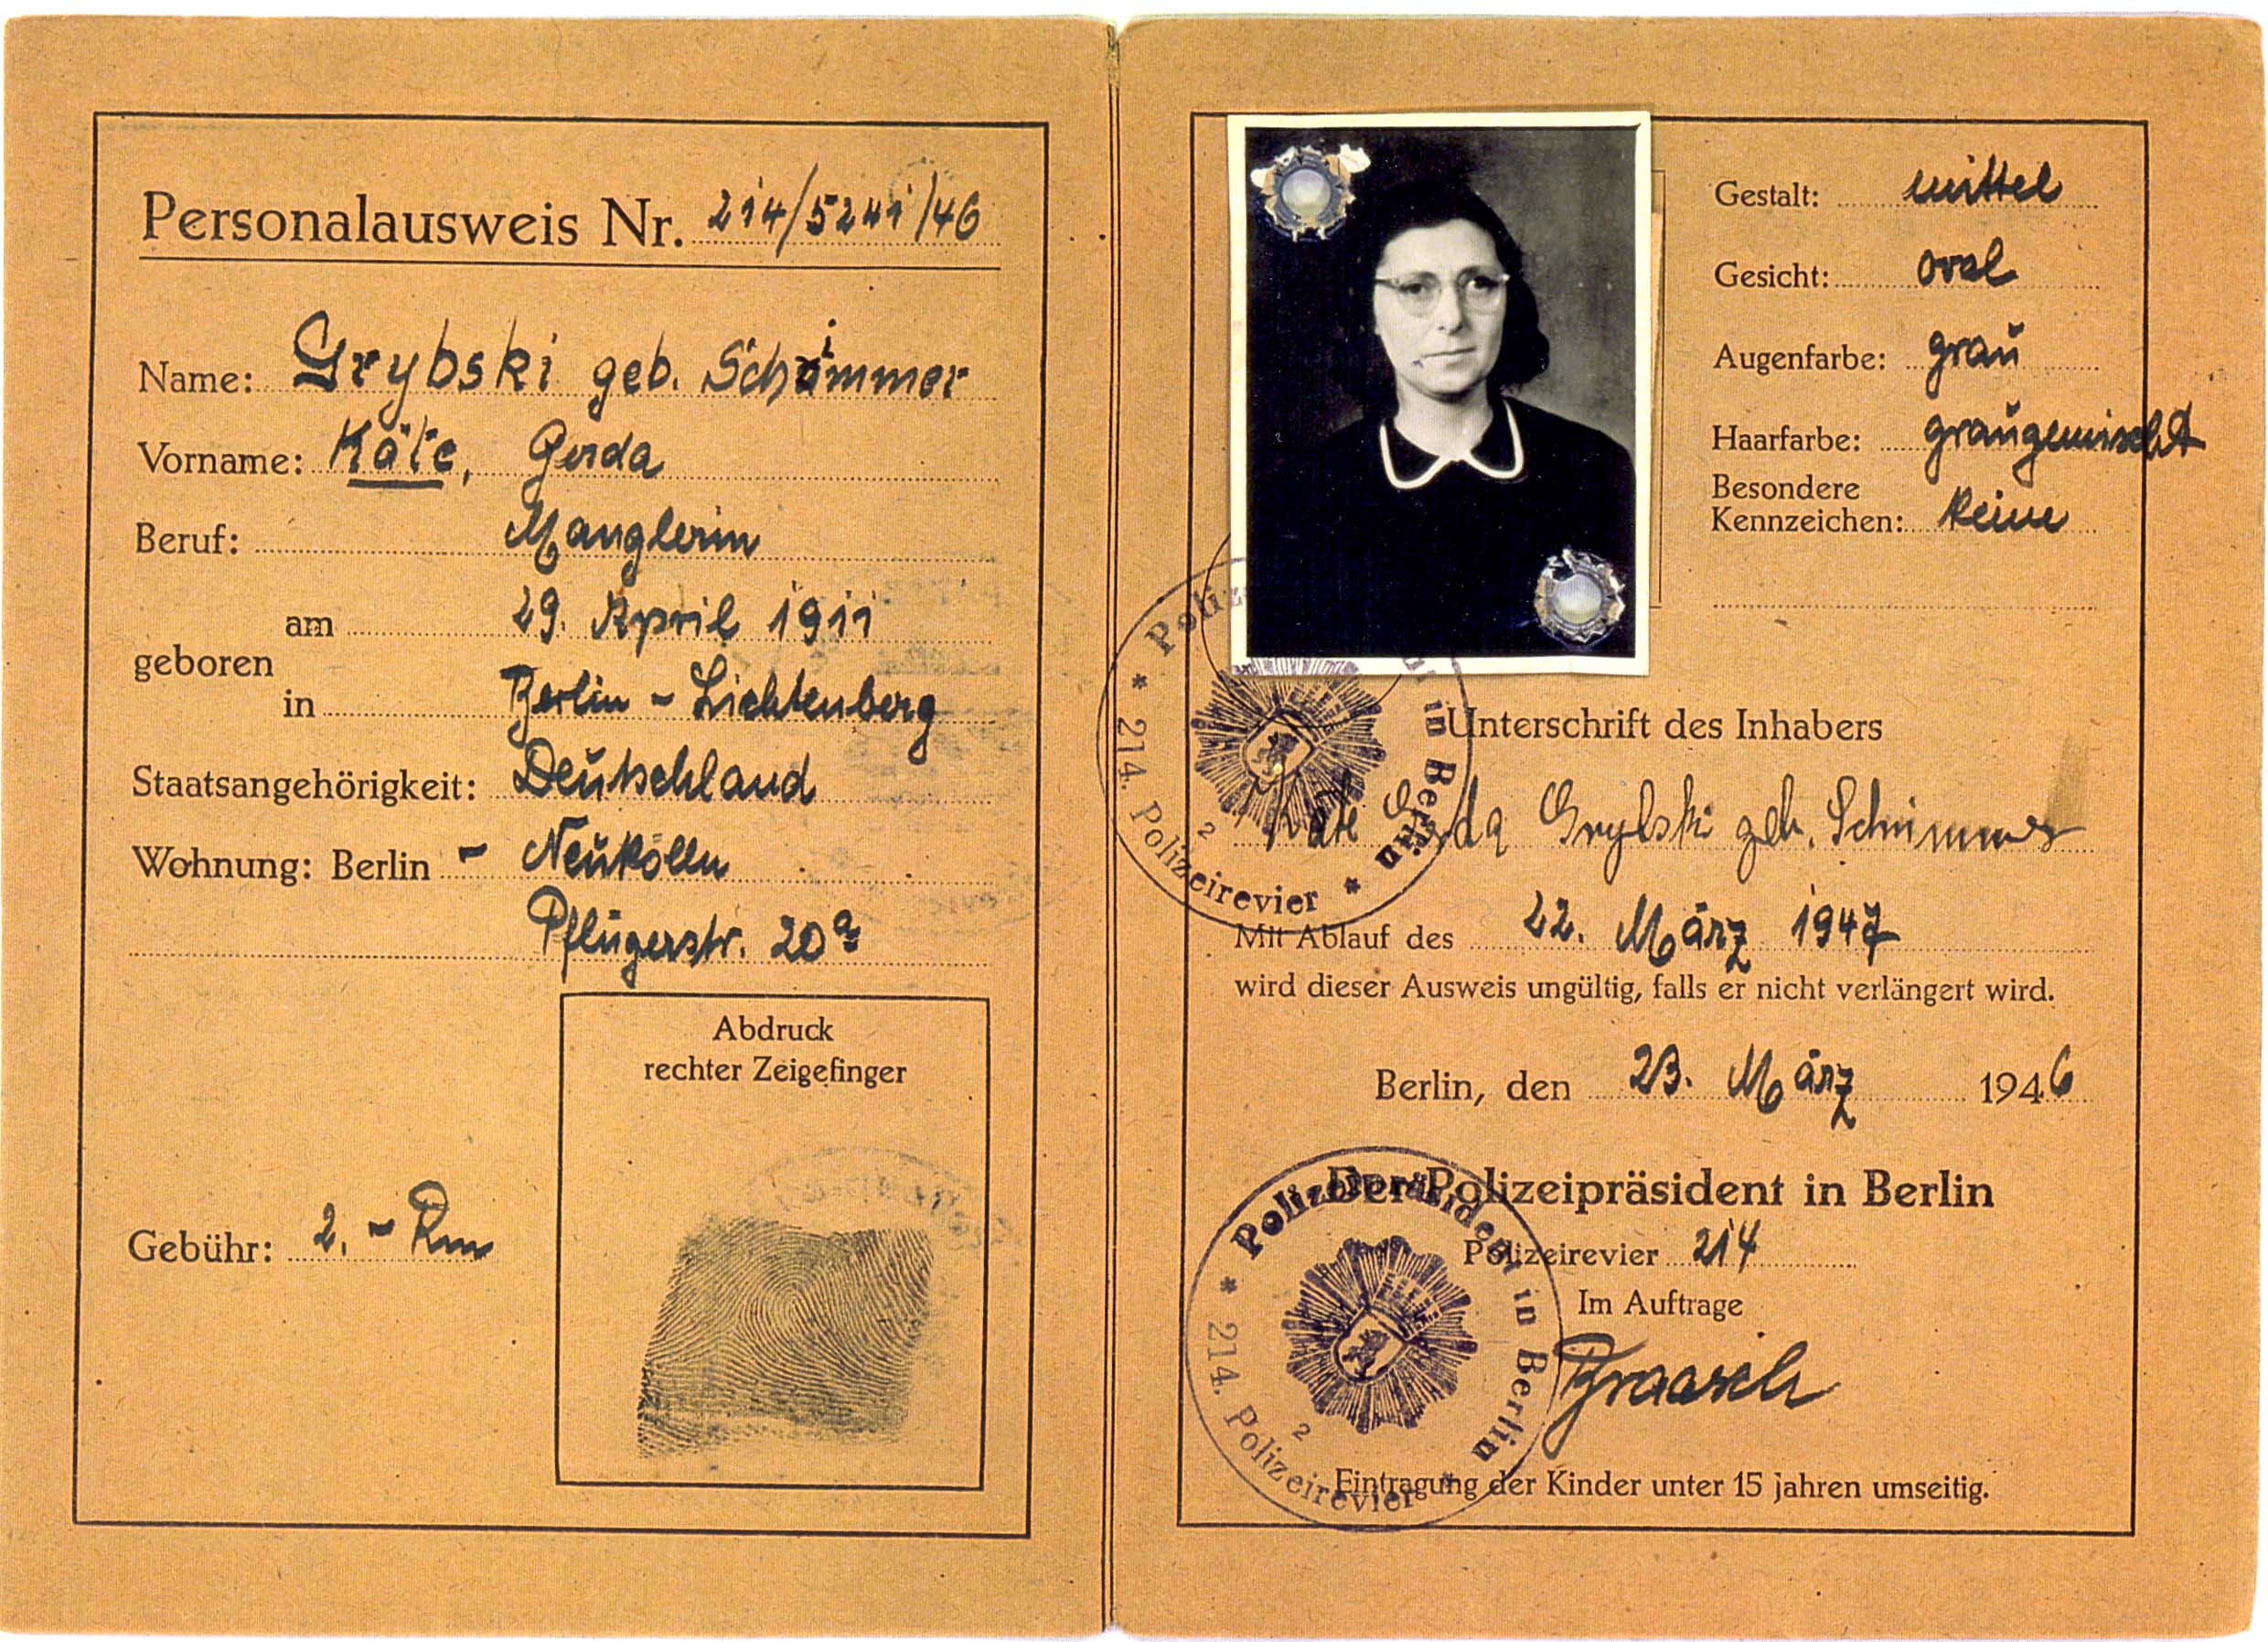 Personalausweis Nr. 214/5241/46
Name: Grybski geb. Schimmer
Vorname: Käte, Gerda
Beruf: Manglerin
geboren am 29. April 1911
in Berlin - Lichtenberg
Staatsangehörigkeit: Deutschland
Wohnung: Berlin - Neukölln
Pflügerstr. 20a
Abdruck
rechter Zeigefinger
Gebühr: 2.- Rm
Gestalt: mittel
Gesicht: oval
Augenfarbe: grau
Haarfarbe: graugemischt
Besondere
Kennzeichen: keine
in Berlin
* 214. Polizeirevier *
2
Unterschrift des Inhabers
Käte Gerda Grybski geb. Schimmer
Mit Ablauf des 22. März 1947
wird dieser Ausweis ungültig, falls er nicht verlängert wird.
Berlin, den 23. März 1946
Der Polizeipräsident in Berlin
Polizeirevier 214
Im Auftrage
Braasch
Polizeipräsident in Berlin
* 214. Polizeirevier *
2
Eintragung der Kinder unter 15 Jahren umseitig.